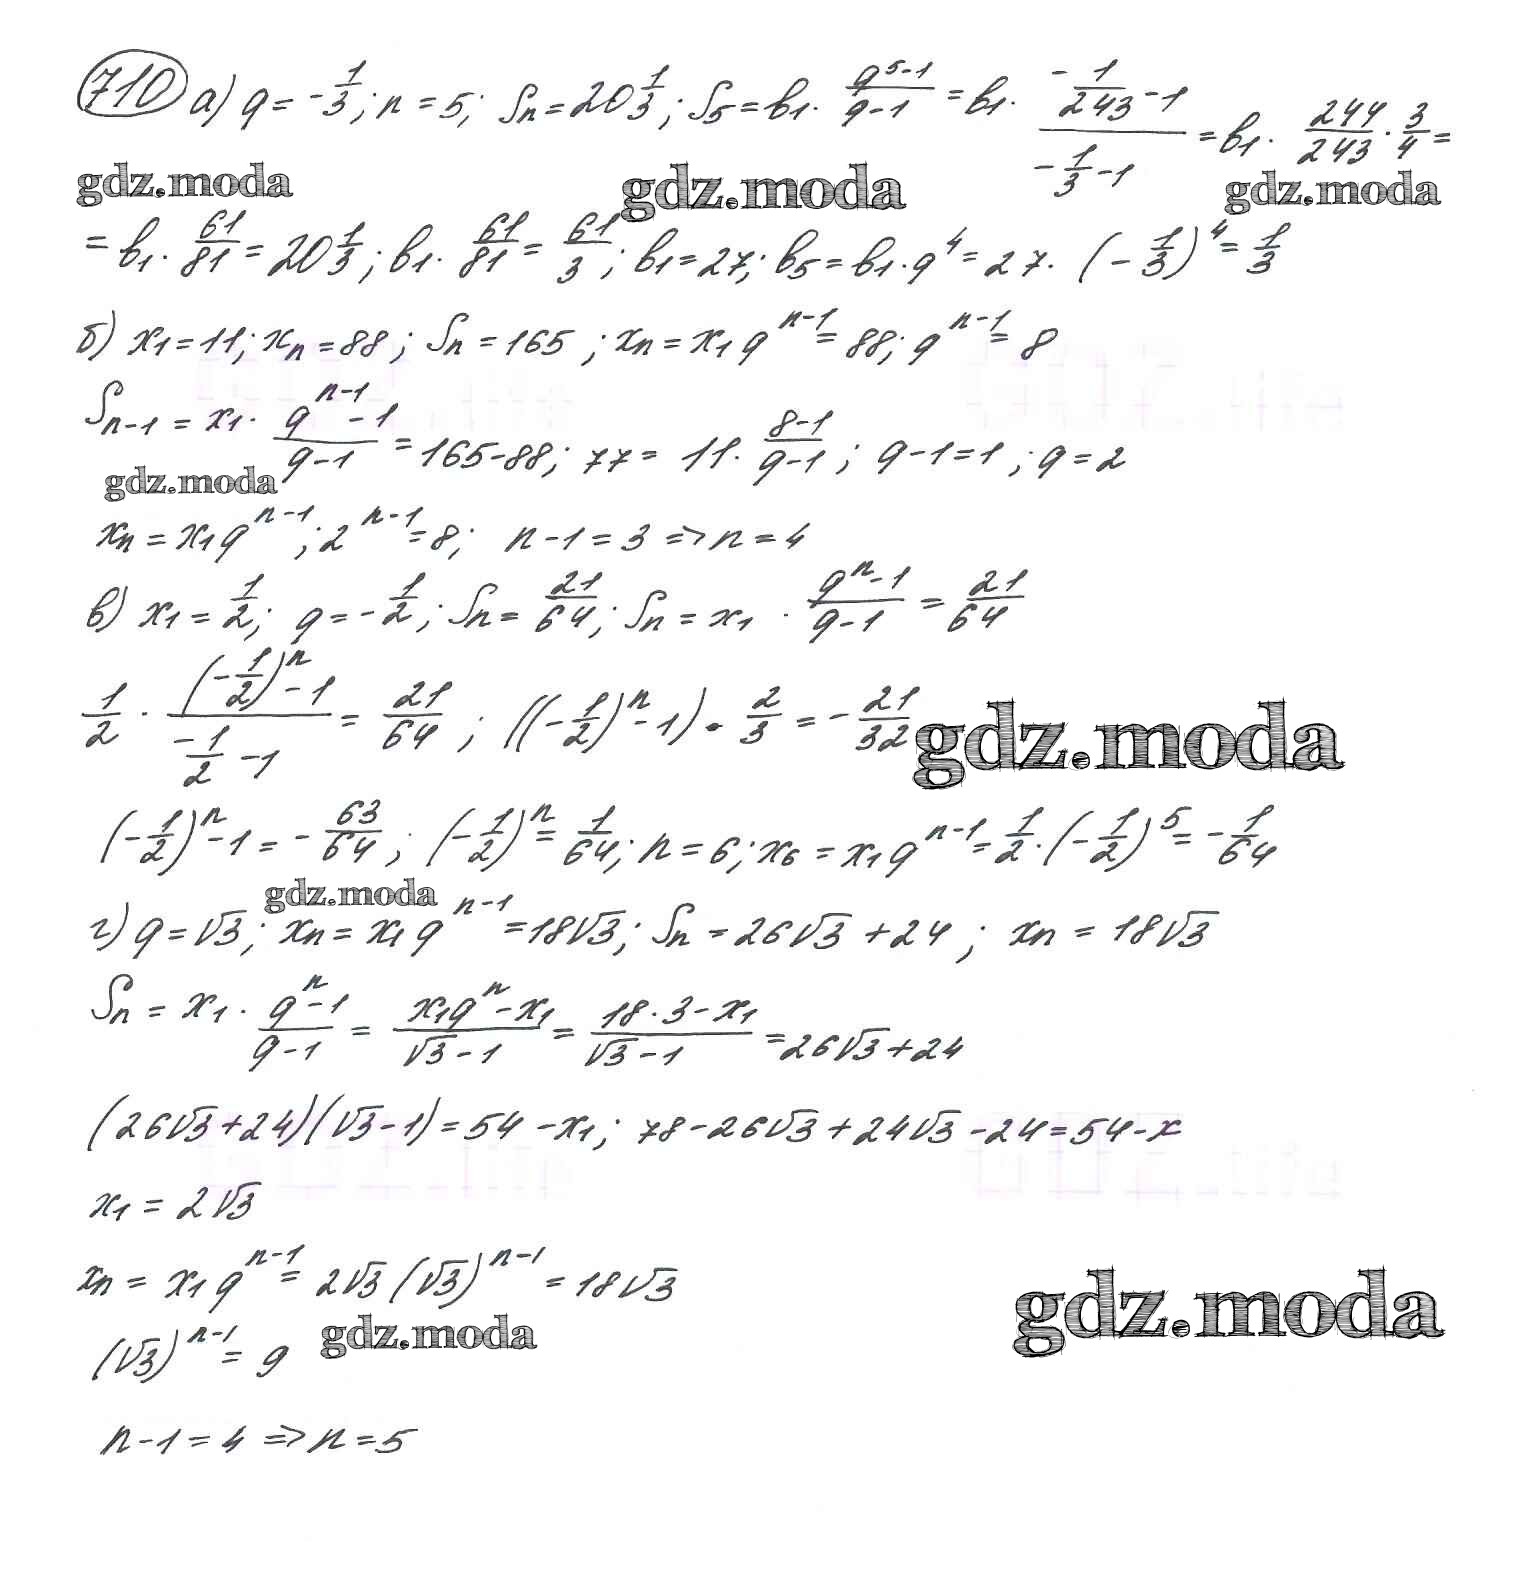 710 а) q = -1/3; n = 5; Sn = 20 1/3; S5 = b1 · (q^5-1)/(q-1) = b1 · (-1/243 -1)/(-1/3 -1) = b1 · 244/243 · 3/4 =
gdz.moda gdz.moda gdz.moda
= b1 · 61/81 = 20 1/3; b1 · 61/81 = 61/3; b1 = 27; b5 = b1 · q^4 = 27 · (-1/3)^4 = 1/3
б) x1 = 11; xn = 88; Sn = 165; xn = x1 q^(n-1) = 88; q^(n-1) = 8
Sn-1 = x1 · (q^(n-1) - 1)/(q-1) = 165-88; 77 = 11 · (8-1)/(q-1); q-1=1; q=2
gdz.moda
xn = x1 q^(n-1); 2^(n-1) = 8; n-1 = 3 => n = 4
в) x1 = 1/2; q = -1/2; Sn = 21/64; Sn = x1 · (q^n - 1)/(q-1) = 21/64
1/2 · ((-1/2)^n - 1)/(-1/2 - 1) = 21/64; ((-1/2)^n - 1) · 2/3 = -21/32
gdz.moda
(-1/2)^n - 1 = -63/64; (-1/2)^n = 1/64; n = 6; x6 = x1 q^(n-1) = 1/2 · (-1/2)^5 = -1/64
gdz.moda
г) q = √3; xn = x1 q^(n-1) = 18√3; Sn = 26√3 + 24; xn = 18√3
Sn = x1 · (q^n - 1)/(q-1) = (x1q^n - x1)/(√3 - 1) = (18 · 3 - x1)/(√3 - 1) = 26√3 + 24
(26√3 + 24)(√3 - 1) = 54 - x1; 78 - 26√3 + 24√3 - 24 = 54 - x
x1 = 2√3
xn = x1 q^(n-1) = 2√3 (√3)^(n-1) = 18√3
gdz.moda gdz.moda
(√3)^(n-1) = 9
n-1 = 4 => n = 5